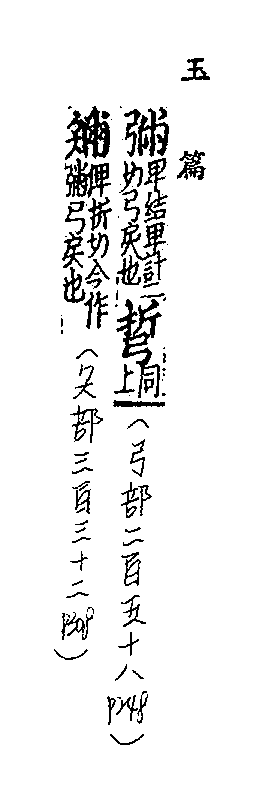 玉篇
卑結卑計二切弓戾也 同上（弓部二百五十八 P248）
俾折切今作 弓戾也（矢部三百三十二 P308）